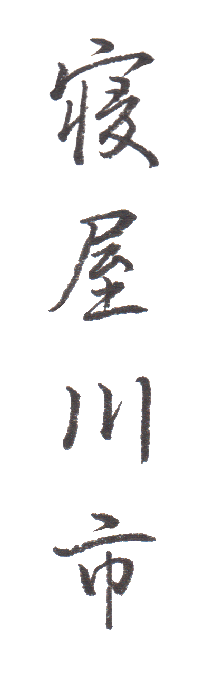 寝屋川市